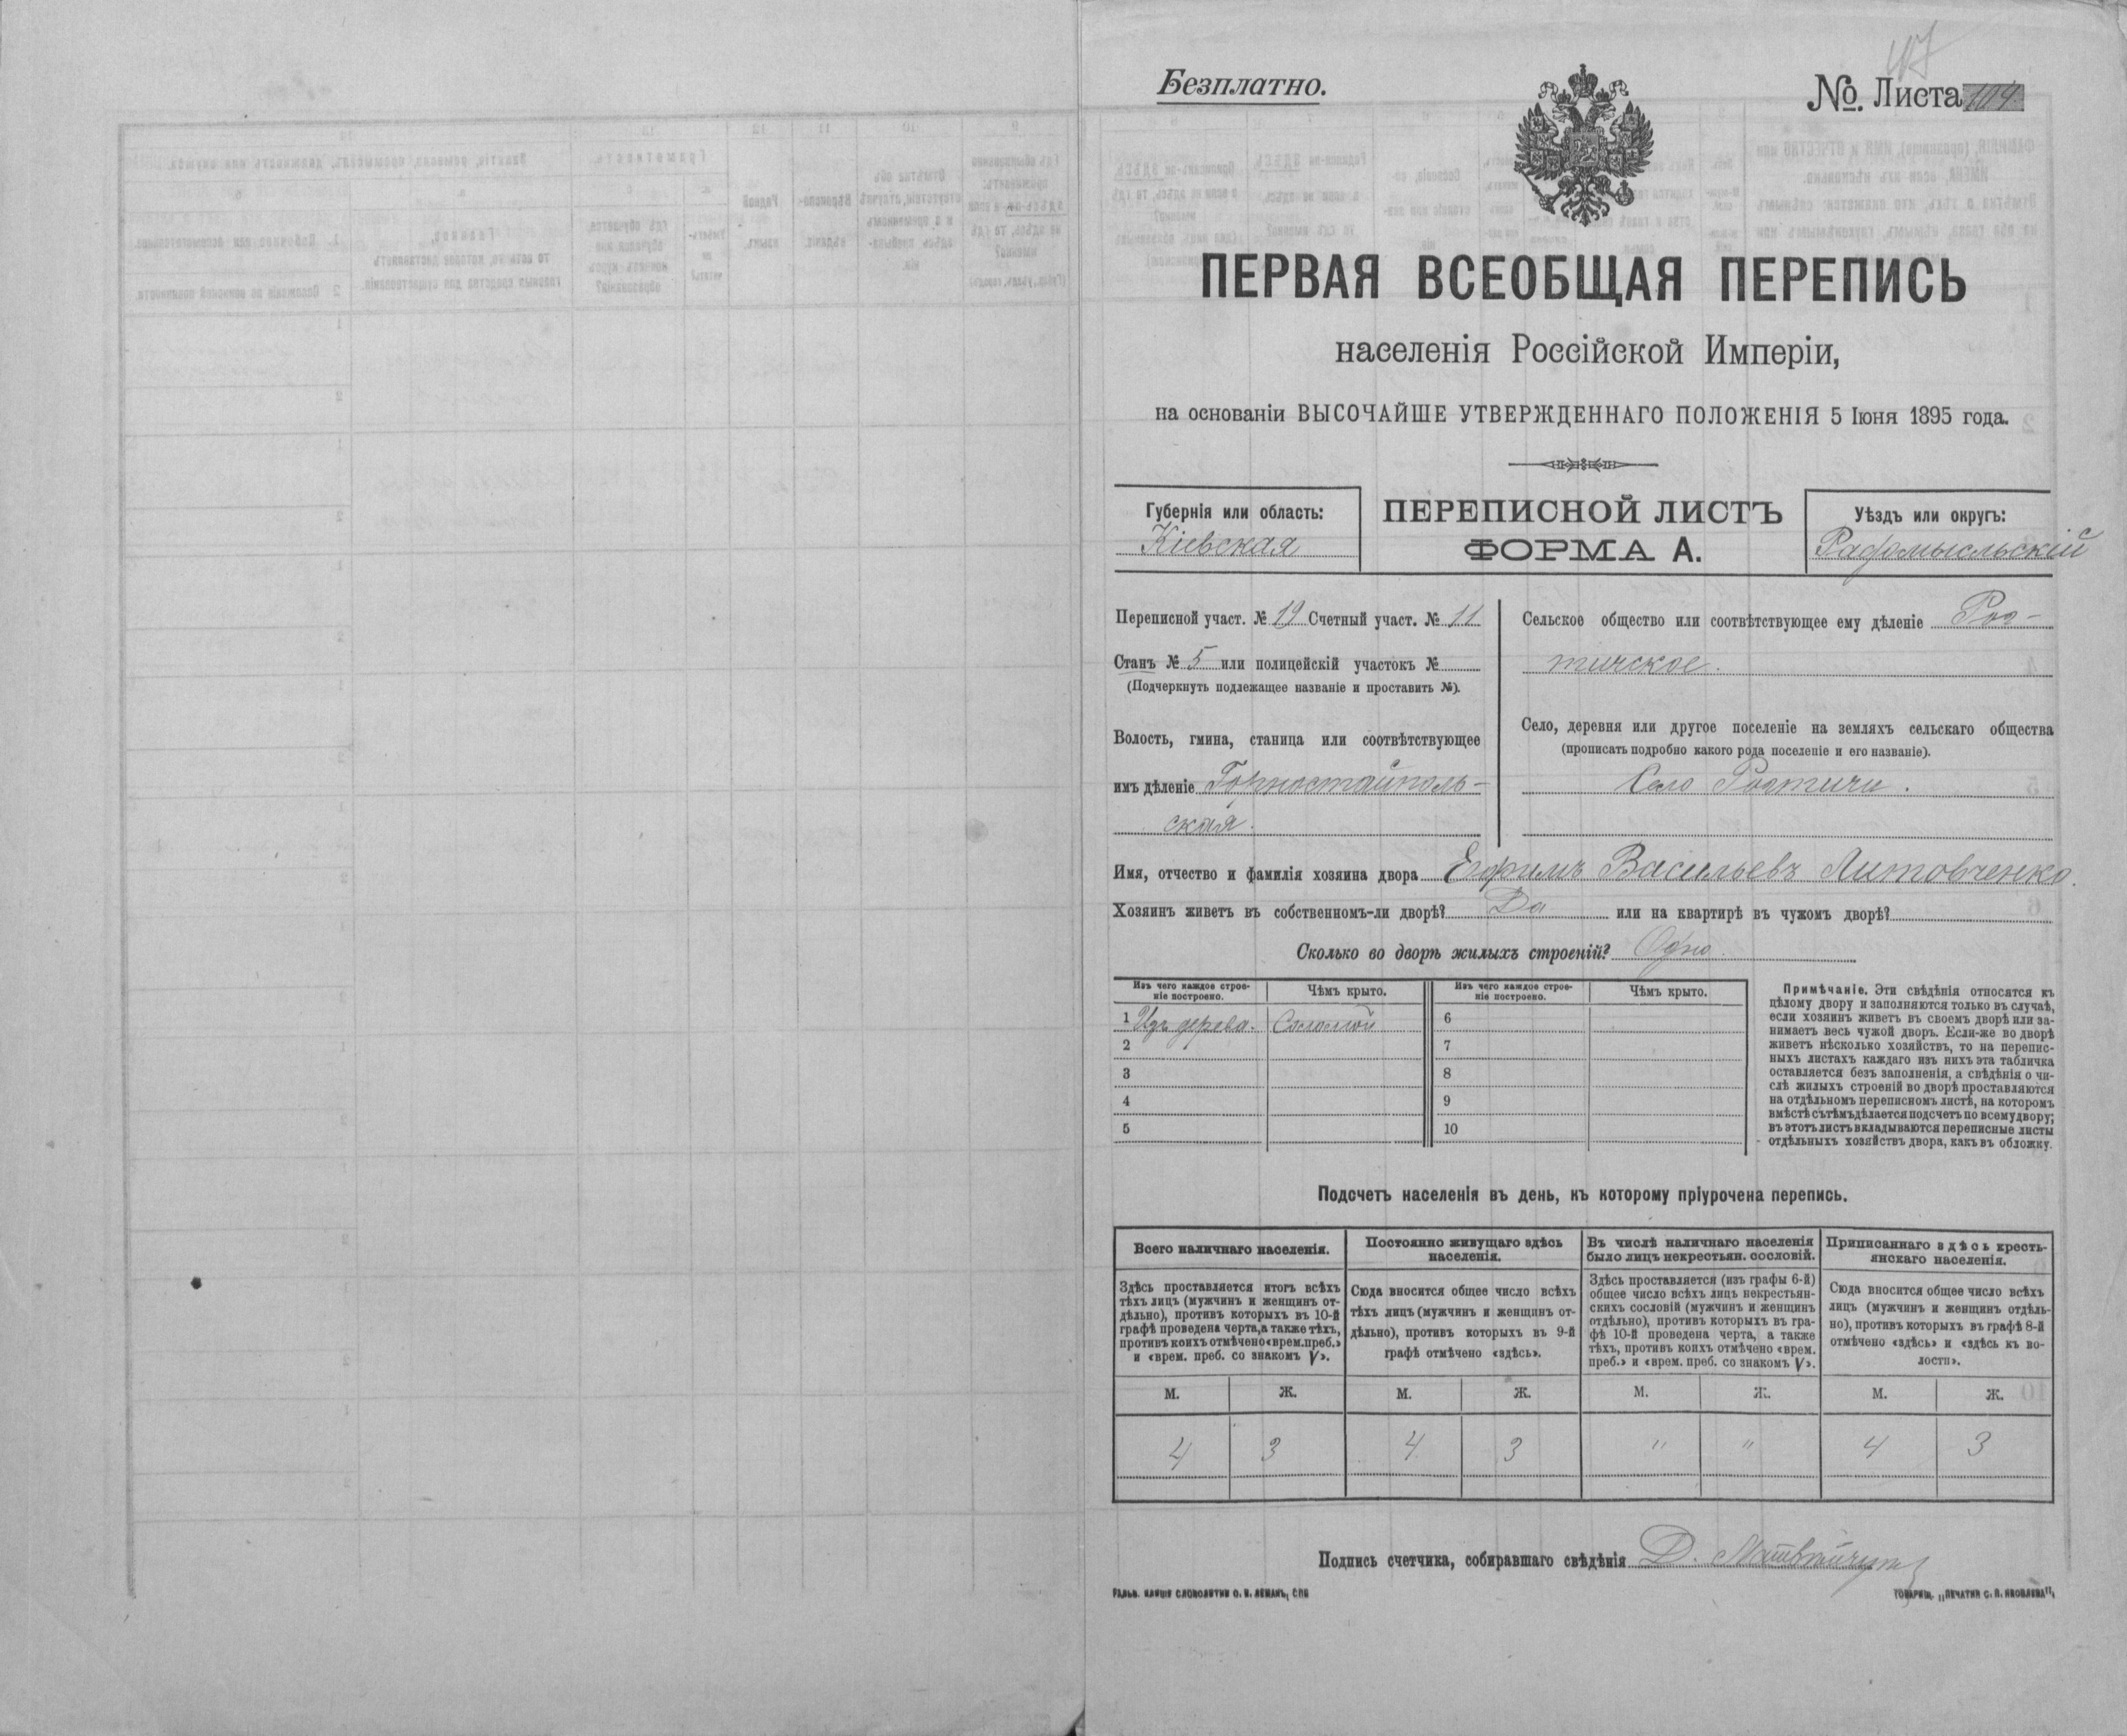 47
Безплатно.
№ Листа 104
ПЕРВАЯ ВСЕОБЩАЯ ПЕРЕПИСЬ
населенія Россійской Имперіи,
на основаніи ВЫСОЧАЙШЕ УТВЕРЖДЕННАГО ПОЛОЖЕНІЯ 5 Іюня 1895 года.
Губернія или область:
Кіевская
ПЕРЕПИСНОЙ ЛИСТЪ
ФОРМА А.
Уѣздъ или округъ:
Радомысльскій
Переписной участ. № 19 Счетный участ. № 11
Станъ № 5 или полицейскій участокъ №
(Подчеркнуть подлежащее названіе и проставить №).
Волость, гмина, станица или соотвѣтствующее
имъ дѣленіе Горностайполь-
ская.
Сельское общество или соотвѣтствующее ему дѣленіе
тичское.
Село, деревня или другое поселеніе на земляхъ сельскаго общества
(прописать подробно какого рода поселеніе и его названіе).
Село
Имя, отчество и фамилія хозяина двора Ефимъ Васильевъ Литовченко.
Хозяинъ живетъ въ собственномъ-ли дворѣ? Да или на квартирѣ въ чужомъ дворѣ?
Сколько во дворѣ жилыхъ строеній? Одно.
Изъ чего каждое строе-
ніе построено.
Чѣмъ крыто.
Изъ чего каждое строе-
ніе построено.
Чѣмъ крыто.
1 Изъ дерева. Соломой
2
3
4
5
6
7
8
9
10
Примѣчаніе. Эти свѣдѣнія относятся къ
цѣлому двору и заполняются только въ случаѣ,
если хозяинъ живетъ въ своемъ дворѣ или за-
нимаетъ весь чужой дворъ. Если-же во дворѣ
живетъ нѣсколько хозяйствъ, то на перепис-
ныхъ листахъ каждаго изъ нихъ эта табличка
оставляется безъ заполненія, а свѣдѣнія о чи-
слѣ жилыхъ строеній во дворѣ проставляются
на отдѣльномъ переписномъ листѣ, на которомъ
вмѣстѣ съ тѣмъ дѣлается подсчетъ по всему двору;
въ этотъ листъ вкладываются переписные листы
отдѣльныхъ хозяйствъ двора, какъ въ обложку.
Подсчетъ населенія въ день, къ которому пріурочена перепись.
Всего наличнаго населенія.
Здѣсь проставляется итогъ всѣхъ
тѣхъ лицъ (мужчинъ и женщинъ от-
дѣльно), противъ которыхъ въ 10-й
графѣ проведена черта, а также тѣхъ,
противъ коихъ отмѣчено «врем. преб.»
и «врем. преб. со знакомъ V».
Постоянно живущаго здѣсь
населенія.
Сюда вносится общее число всѣхъ
тѣхъ лицъ (мужчинъ и женщинъ от-
дѣльно), противъ которыхъ въ 9-й
графѣ отмѣчено «здѣсь».
Въ числѣ наличнаго населенія
было лицъ некрестьян. сословій.
Здѣсь проставляется (изъ графы 6-й)
общее число всѣхъ лицъ некрестьян-
скихъ сословій (мужчинъ и женщинъ
отдѣльно), противъ которыхъ въ гра-
фѣ 10-й проведена черта, а также
тѣхъ, противъ коихъ отмѣчено «врем.
преб.» и «врем. преб. со знакомъ V».
Приписаннаго здѣсь кресть-
янскаго населенія.
Сюда вносится общее число всѣхъ
лицъ (мужчинъ и женщинъ отдѣль-
но), противъ которыхъ въ графѣ 8-й
отмѣчено «здѣсь» и «здѣсь къ во-
лости».
М. Ж. М. Ж. М. Ж. М. Ж.
4 3 4 3 " " 4 3
Подпись счетчика, собиравшаго свѣдѣнія Д.
ГАЛЬВ. КЛИШЕ СЛОВОЛИТНИ О. И. ЛЕМАНЪ, СПБ
ТОВАРИЩ. „ПЕЧАТНЯ С. П. ЯКОВЛЕВА“,